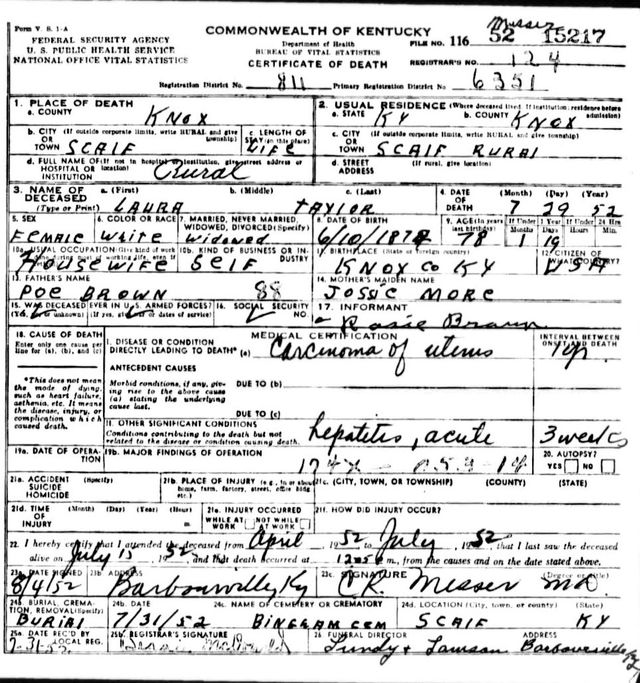 Form V. S. 1-A
FEDERAL SECURITY AGENCY
U. S. PUBLIC HEALTH SERVICE
NATIONAL OFFICE VITAL STATISTICS
COMMONWEALTH OF KENTUCKY
Department of Health
BUREAU OF VITAL STATISTICS
CERTIFICATE OF DEATH
Messer
FILE NO. 116 52 15217
REGISTRAR'S NO. 124
Registration District No. 811 Primary Registration District No. 6351
1. PLACE OF DEATH
a. COUNTY KNOX
2. USUAL RESIDENCE (Where deceased lived. If institution, residence before admission)
a. STATE KY b. COUNTY KNOX
b. CITY (If outside corporate limits, write RURAL and give township) OR TOWN SCALF
c. LENGTH OF STAY (in this place) LIFE
c. CITY (If outside corporate limits, write RURAL and give township) OR TOWN SCALF RURAL
d. FULL NAME OF (If not in hospital or institution, give street address or location) HOSPITAL OR INSTITUTION Rural
d. STREET ADDRESS (If rural, give location)
3. NAME OF DECEASED (Type or Print) a. (First) LAURA b. (Middle) c. (Last) TAYLOR
4. DATE OF DEATH (Month) 7 (Day) 29 (Year) 52
5. SEX FEMALE
6. COLOR OR RACE White
7. MARRIED, NEVER MARRIED, WIDOWED, DIVORCED (Specify) Widowed
8. DATE OF BIRTH 6/10/1874
9. AGE (In years last birthday) 78 If Under 1 Year 1 19 If Under 24 Hrs.
10a. USUAL OCCUPATION (Give kind of work done during most of working life, even if retired) Housewife
10b. KIND OF BUSINESS OR INDUSTRY Self
11. BIRTHPLACE (State or foreign country) KNOX CO KY
12. CITIZEN OF WHAT COUNTRY? USA
13. FATHER'S NAME POE BROWN
14. MOTHER'S MAIDEN NAME JOSSIE MORE
15. WAS DECEASED EVER IN U.S. ARMED FORCES? (Yes, no, or unknown) (If yes, give war or dates of service)
88
16. SOCIAL SECURITY NO.
17. INFORMANT Rosie Brown
18. CAUSE OF DEATH
Enter only one cause per line for (a), (b), and (c)
MEDICAL CERTIFICATION
INTERVAL BETWEEN ONSET AND DEATH
I. DISEASE OR CONDITION DIRECTLY LEADING TO DEATH* (a) Carcinoma of uterus 1 yr.
*This does not mean the mode of dying, such as heart failure, asthenia, etc. It means the disease, injury, or complication which caused death.
ANTECEDENT CAUSES
Morbid conditions, if any, giving rise to the above cause (a) stating the underlying cause last.
DUE TO (b)
DUE TO (c)
II. OTHER SIGNIFICANT CONDITIONS
Conditions contributing to the death but not related to the disease or condition causing death.
hepatetis, acute 3 weeks
19a. DATE OF OPERATION
19b. MAJOR FINDINGS OF OPERATION
20. AUTOPSY? YES NO
21a. ACCIDENT SUICIDE HOMICIDE (Specify)
21b. PLACE OF INJURY (e.g., in or about home, farm, factory, street, office bldg., etc.)
21c. (CITY, TOWN, OR TOWNSHIP) (COUNTY) (STATE)
21d. TIME OF INJURY (Month) (Day) (Year) (Hour)
21e. INJURY OCCURRED WHILE AT WORK NOT WHILE AT WORK
21f. HOW DID INJURY OCCUR?
22. I hereby certify that I attended the deceased from April, 1952 to July, 1952, that I last saw the deceased
alive on July 15 1952, and that death occurred at m., from the causes and on the date stated above.
23a. DATE SIGNED 8/4/52
23b. ADDRESS Barbourville, Ky
23c. SIGNATURE C. R. Messer MD (Degree or title)
24a. BURIAL, CREMATION, REMOVAL (Specify) BURIAL
24b. DATE 7/31/52
24c. NAME OF CEMETERY OR CREMATORY BINGRAM CEM
24d. LOCATION (City, town, or county) (State) SCALF KY
25a. DATE REC'D BY LOCAL REG. 7-31-52
25b. REGISTRAR'S SIGNATURE
26. FUNERAL DIRECTOR ADDRESS
Lundy & Lawson Barbourville Ky